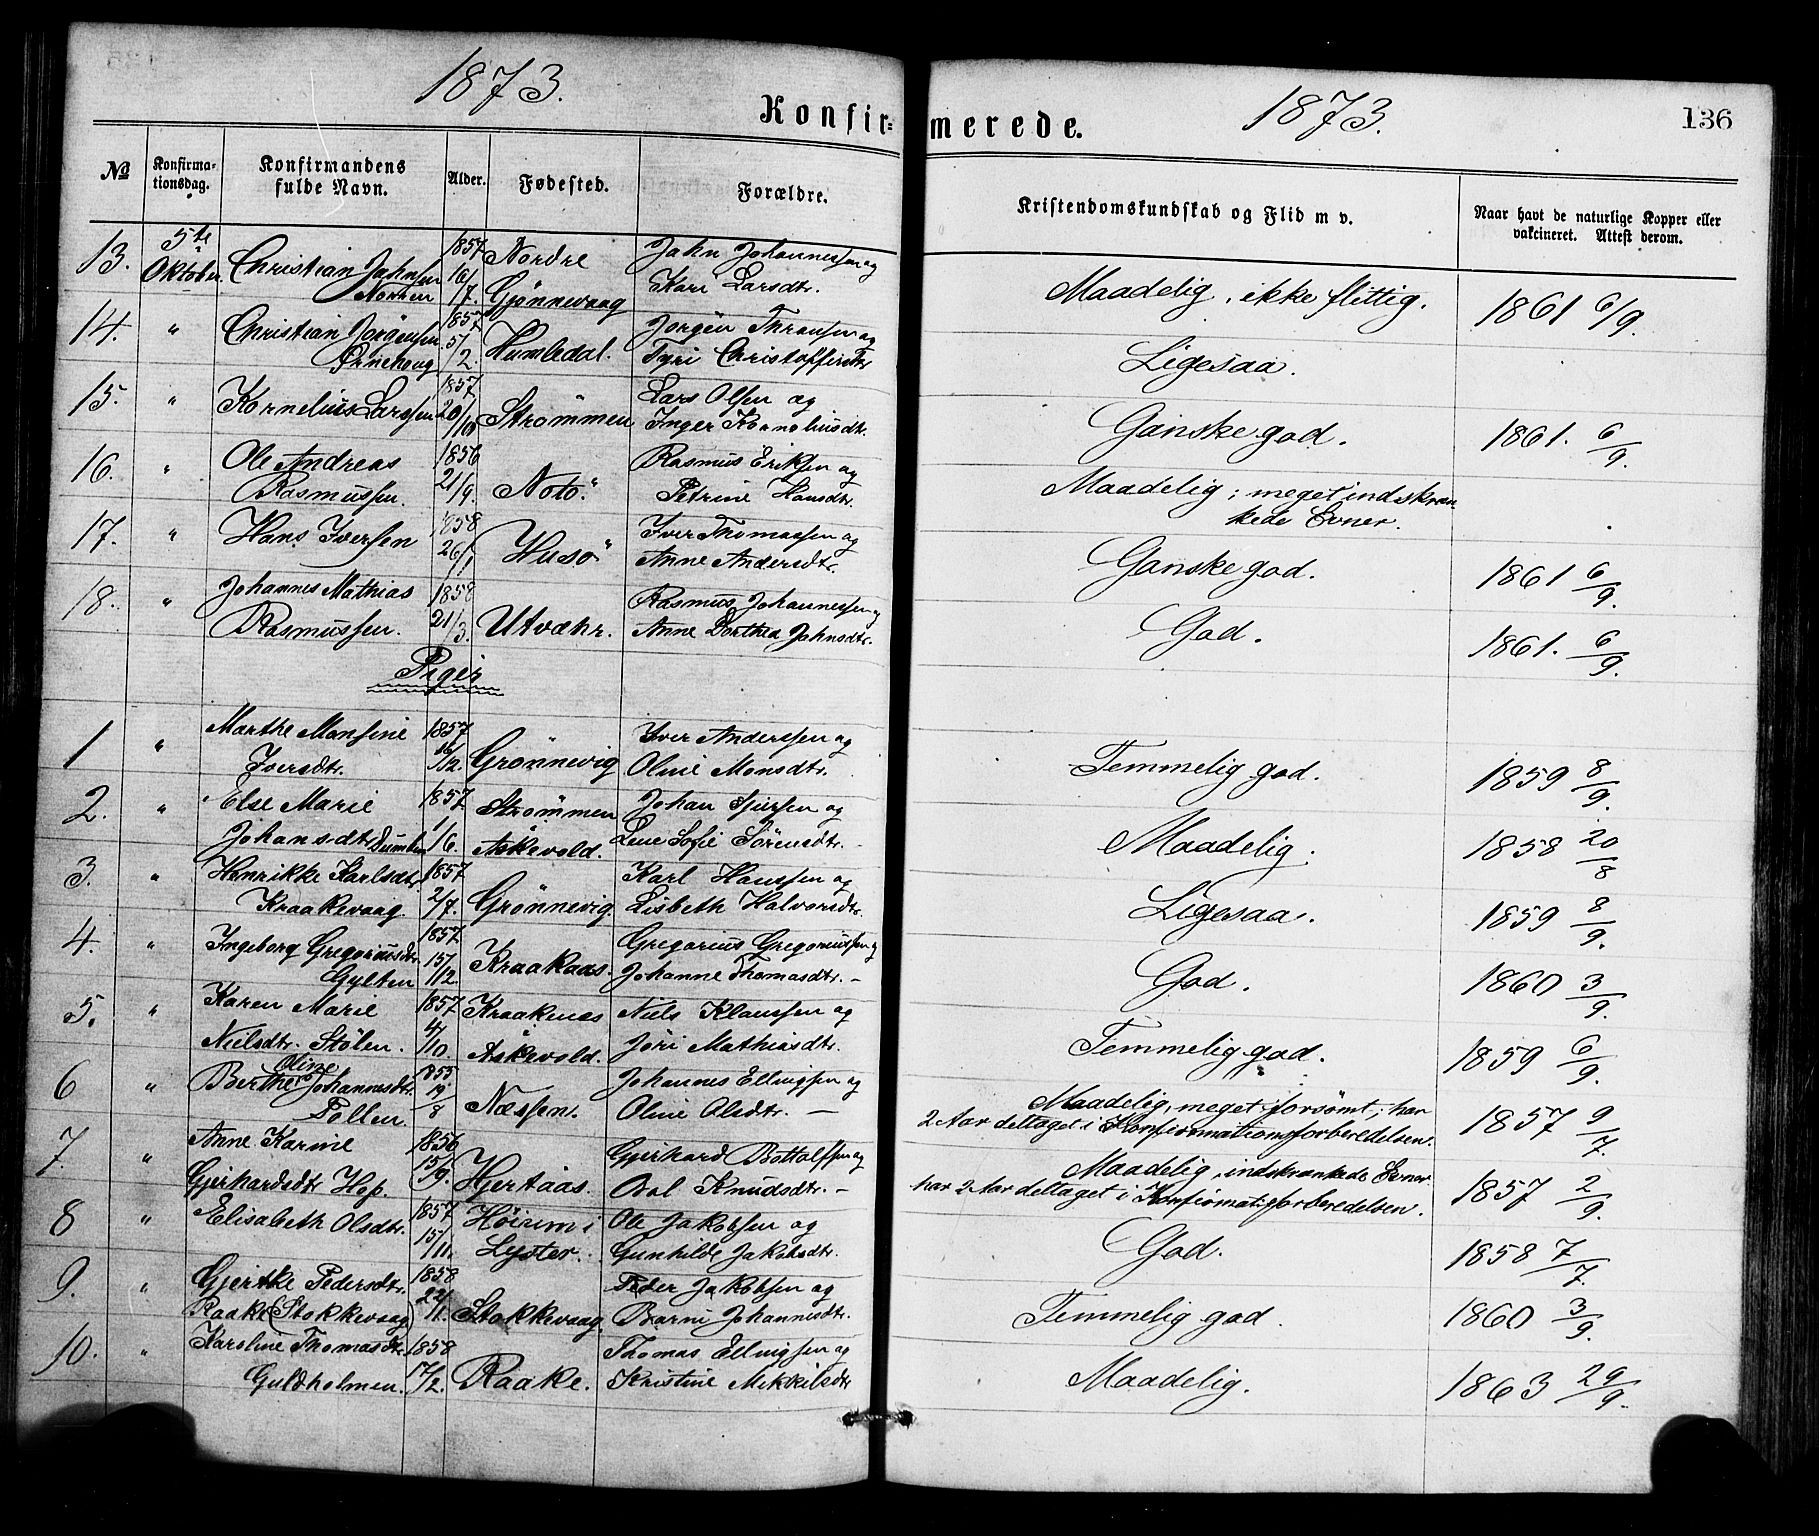 1873.
Konfir=
merede.
1873.
136
No
Konfirma-
tionsdag.
Konfirmandens
fulde Navn.
Alder.
Fødested.
Forældre.
Kristendomskundskab og Flid m v.
Naar havt de naturlige Kopper eller
vakcineret. Attest derom.
13. 5te Oktober. Christian Jahnsen 1857 16/7. Nordre Gjønnevaag Jahn Johannessen og Kari Larsdtr. Maadelig, ikke flittig. 1861 6/9.
14. " Christian Jörgensen 1857 5/2 Humledal. Jørgen Thransen og Christoffersdtr Ligesaa.
15. " Kornelius Larssen 1857 20/10 Strømmen Lars Olsen og Inger Korneliusdtr. Ganske god. 1861. 6/9.
16. " Ole Andreas Rasmussen. 1856 21/9. Notö. Rasmus Eriksen og Petrine Hansdtr. Maadelig; meget indskræn- kede Evner.
17. " Hans Iversen 1858 26/1 Husö Iver Thomassen og Anne Andersdtr. Ganske god. 1861 6/9.
18. " Johannes Mathias Rasmussen. 1858 21/3. Utvæhr. Rasmus Johannessen og Anne Dorthea Jahnsdtr. God. 1861. 6/9.
Piger
1 " Marthe Monsine Iversdtr. 1857 16/12. Grönnevig Iver Anderssen og Oline Monsdtr. Temmelig god. 1859 8/9.
2. " Else Marie Johansdtr 1857 1/6. Strømmen Askevold. Johan og Lene Sofie Sörensdtr. Maadelig. 1858 20/8
3. " Henrikke Karlsdtr Kraakevaag. 1857 2/7. Grönnevig. Karl Hanssen og Lisbeth Halvorsdtr. Ligesaa. 1859 8/9.
4. " Ingeborg Gregoriusdtr Gylten 1857 15/12 Kraakaas. Gregorius Gregoriussen og Johanne Thomasdtr. — God. 1860 3/9.
5. " Karen Marie Nielsdtr. Stölen. 1857 4/10. Kraaknes Askevold. Niels Klaussen og Jöri Mathiasdtr. Temmelig god. 1859 6/9.
6 " Berthe Oline Johannesdtr. Pollen. 1855 19/8 Næssen. Johannes Ellingsen og Oline Olsdtr. — Maadelig, meget forsömt; har 2 Aar deltaget i Konfirmationsforberedelsen. 1857 9/7.
7. " Anne Karine Gjerhardsdtr Hop. 1856 15/9. Hjertaas. Gjerhard Bottolfsen og Knudsdtr. — Maadelig, indskrænkede Evner. har 2 Aar deltaget i Konfirmatiforberedelsen. 1857 2/9.
8 " Elisabeth Olsdtr. 1857 15/11. Höium i Lyster. Ole Jakobsen og Gunhilde Jakobsdtr. God. 1858 7/7.
9. " Gjertke Pedersdtr. Raake (Stokkevaag) 1858 22/1. Stokkevaag. Peder Jakobsen og Johannesdtr. Temmelig god. 1860 3/9.
10. " Karoline Thomasdtr. Guldholmen. 1858 17/2. Raake. Thomas Ellingsen og Kristine Mikkelsdtr Maadelig. 1863 29/9.